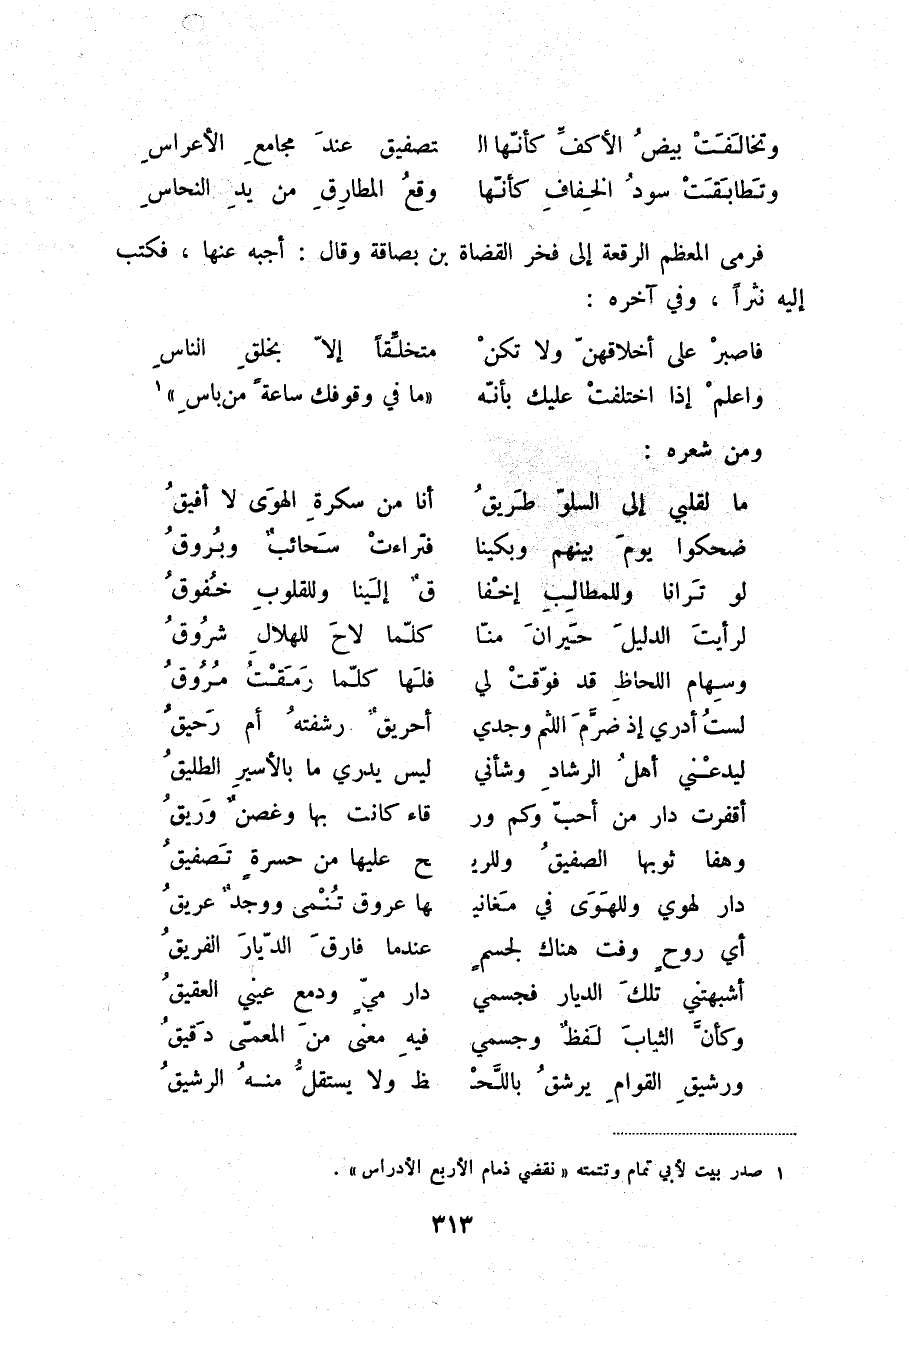 وتخالَفَتْ بيضُ الأكفِّ كأنّها الـ تصفيق عندَ مجامعِ الأعراسِ
وتَطابَقَتْ سودُ الخِفافِ كأنّها وقعُ المطارِقِ من يدِ النحاسِ
فرمى المعظم الرقعة إلى فخر القضاة بن بصاقة وقال : أجبه عنها ، فكتب
إليه نثراً ، وفي آخره :
فاصبرْ على أخلاقهنّ ولا تكنْ متخلّقاً إلاّ بخلقِ الناسِ
واعلمْ إذا اختلفتْ عليك بأنّه «ما في وقوفك ساعةً من باسِ» ١
ومن شعره :
ما لقلبي إلى السلوّ طَريقُ أنا من سكرةِ الهوَى لا أفيقُ
ضحكوا يومَ بينهم وبكينا فتراءتْ سَحائبٌ وبُروقُ
لو تَرانا وللمطالِبِ إخْفا قٌ إلَينا وللقلوبِ خُفوقُ
لرأيتَ الدليلَ حَيرانَ منّا كلّما لاحَ للهلالِ شرُوقُ
وسِهام اللحاظِ قد فوّقتْ لي فلَها كلّما رَمَقْتُ مُرُوقُ
لستُ أدري إذ ضرَّمَ اللثم وجدي أحريقٌ رشفتهُ أم رَحيقُ
ليدعْني أهلُ الرشادِ وشأني ليس يدري ما بالأسيرِ الطليقُ
أقفرت دار من أحبّ وكم ور قاء كانت بها وغصنٌ وَريقُ
وهفا ثوبها الصفيقُ وللريـ ح عليها من حسرةٍ تَصفيقُ
دار لهوي وللهَوَى في مَغانيـ ها عروق تُنْمى ووجدٌ عريقُ
أي روحٍ وفت هناك لجسمٍ عندما فارقَ الدّيارَ الفريقُ
أشبهتني تلكَ الديار فجسمي دار ميّ ودمع عيني العقيقُ
وكأنَّ الثيابَ لَفظٌ وجسمي فيهِ معنى منَ المعمّى دَقيقُ
ورشيقِ القوامِ يرشقُ باللَّحْـ ظ ولا يستقلُّ منهُ الرشيقُ
١ صدر بيت لأبي تمام وتتمته « نقضي ذمام الأربع الأدراس » .
٣١٣